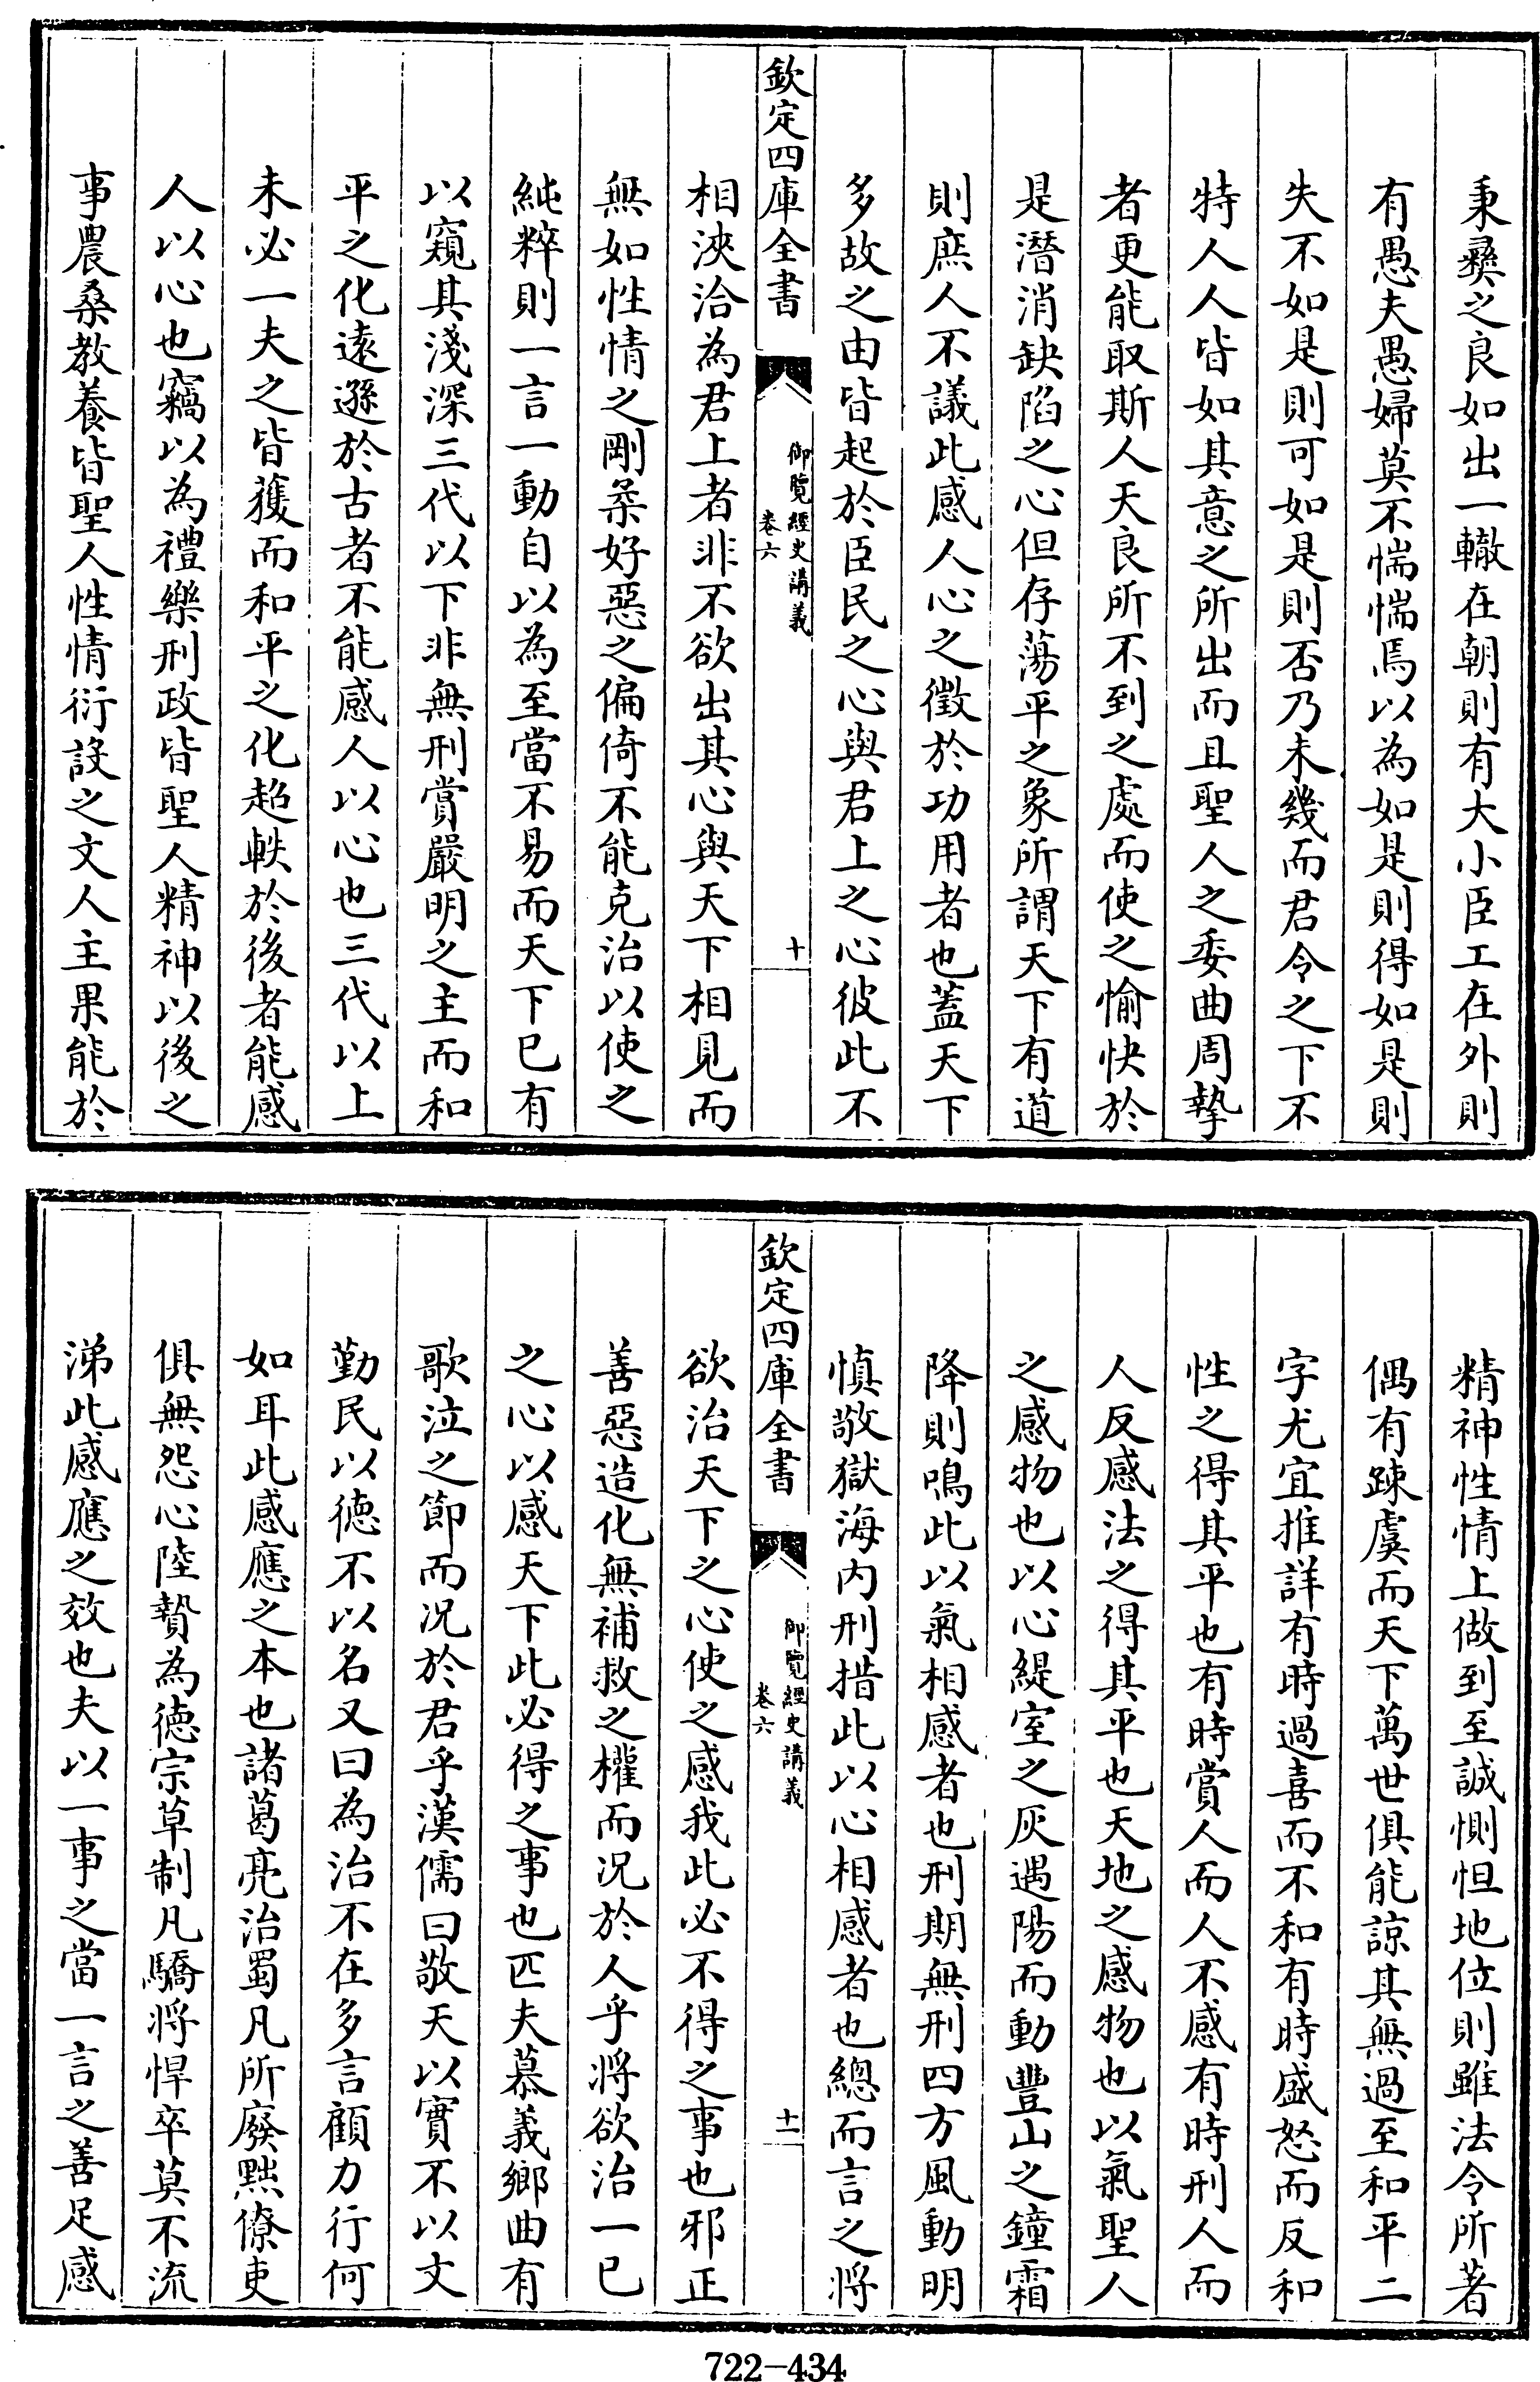 秉彛之良如出一轍在朝則有大小臣工在外則
有愚夫愚婦莫不惴惴焉以為如是則得如是則
失不如是則可如是則否乃未幾而君令之下不
特人人皆如其意之所出而且聖人之委曲周摯
者更能取斯人天良所不到之處而使之愉快於
是潛消缺陷之心但存蕩平之象所謂天下有道
則庶人不議此感人心之徵於功用者也蓋天下
多故之由皆起於臣民之心與君上之心彼此不
欽定四庫全書
御覽經史講義
卷六
十
相浹洽為君上者非不欲出其心與天下相見而
無如性情之剛柔好惡之偏倚不能克治以使之
純粹則一言一動自以為至當不易而天下已有
以窺其淺深三代以下非無刑賞嚴明之主而和
平之化遠遜於古者不能感人以心也三代以上
未必一夫之皆獲而和平之化超軼於後者能感
人以心也竊以為禮樂刑政皆聖人精神以後之
事農桑教養皆聖人性情衍設之文人主果能於
精神性情上做到至誠惻怛地位則雖法令所著
偶有踈虞而天下萬世俱能諒其無過至和平二
字尤宜推詳有時過喜而不和有時盛怒而反和
性之得其平也有時賞人而人不感有時刑人而
人反感法之得其平也天地之感物也以氣聖人
之感物也以心緹室之灰遇陽而動豐山之鐘霜
降則鳴此以氣相感者也刑期無刑四方風動明
慎敬獄海内刑措此以心相感者也總而言之將
欽定四庫全書
御覽經史講義
卷六
十一
欲治天下之心使之感我此必不得之事也邪正
善惡造化無補救之權而况於人乎將欲治一已
之心以感天下此必得之事也匹夫慕義鄉曲有
歌泣之節而况於君乎漢儒曰敬天以實不以文
勤民以德不以名又曰為治不在多言顧力行何
如耳此感應之本也諸葛亮治蜀凡所廢黜僚吏
俱無怨心陸贄為德宗草制凡驕將悍卒莫不流
涕此感應之效也夫以一事之當一言之善足感
722-434